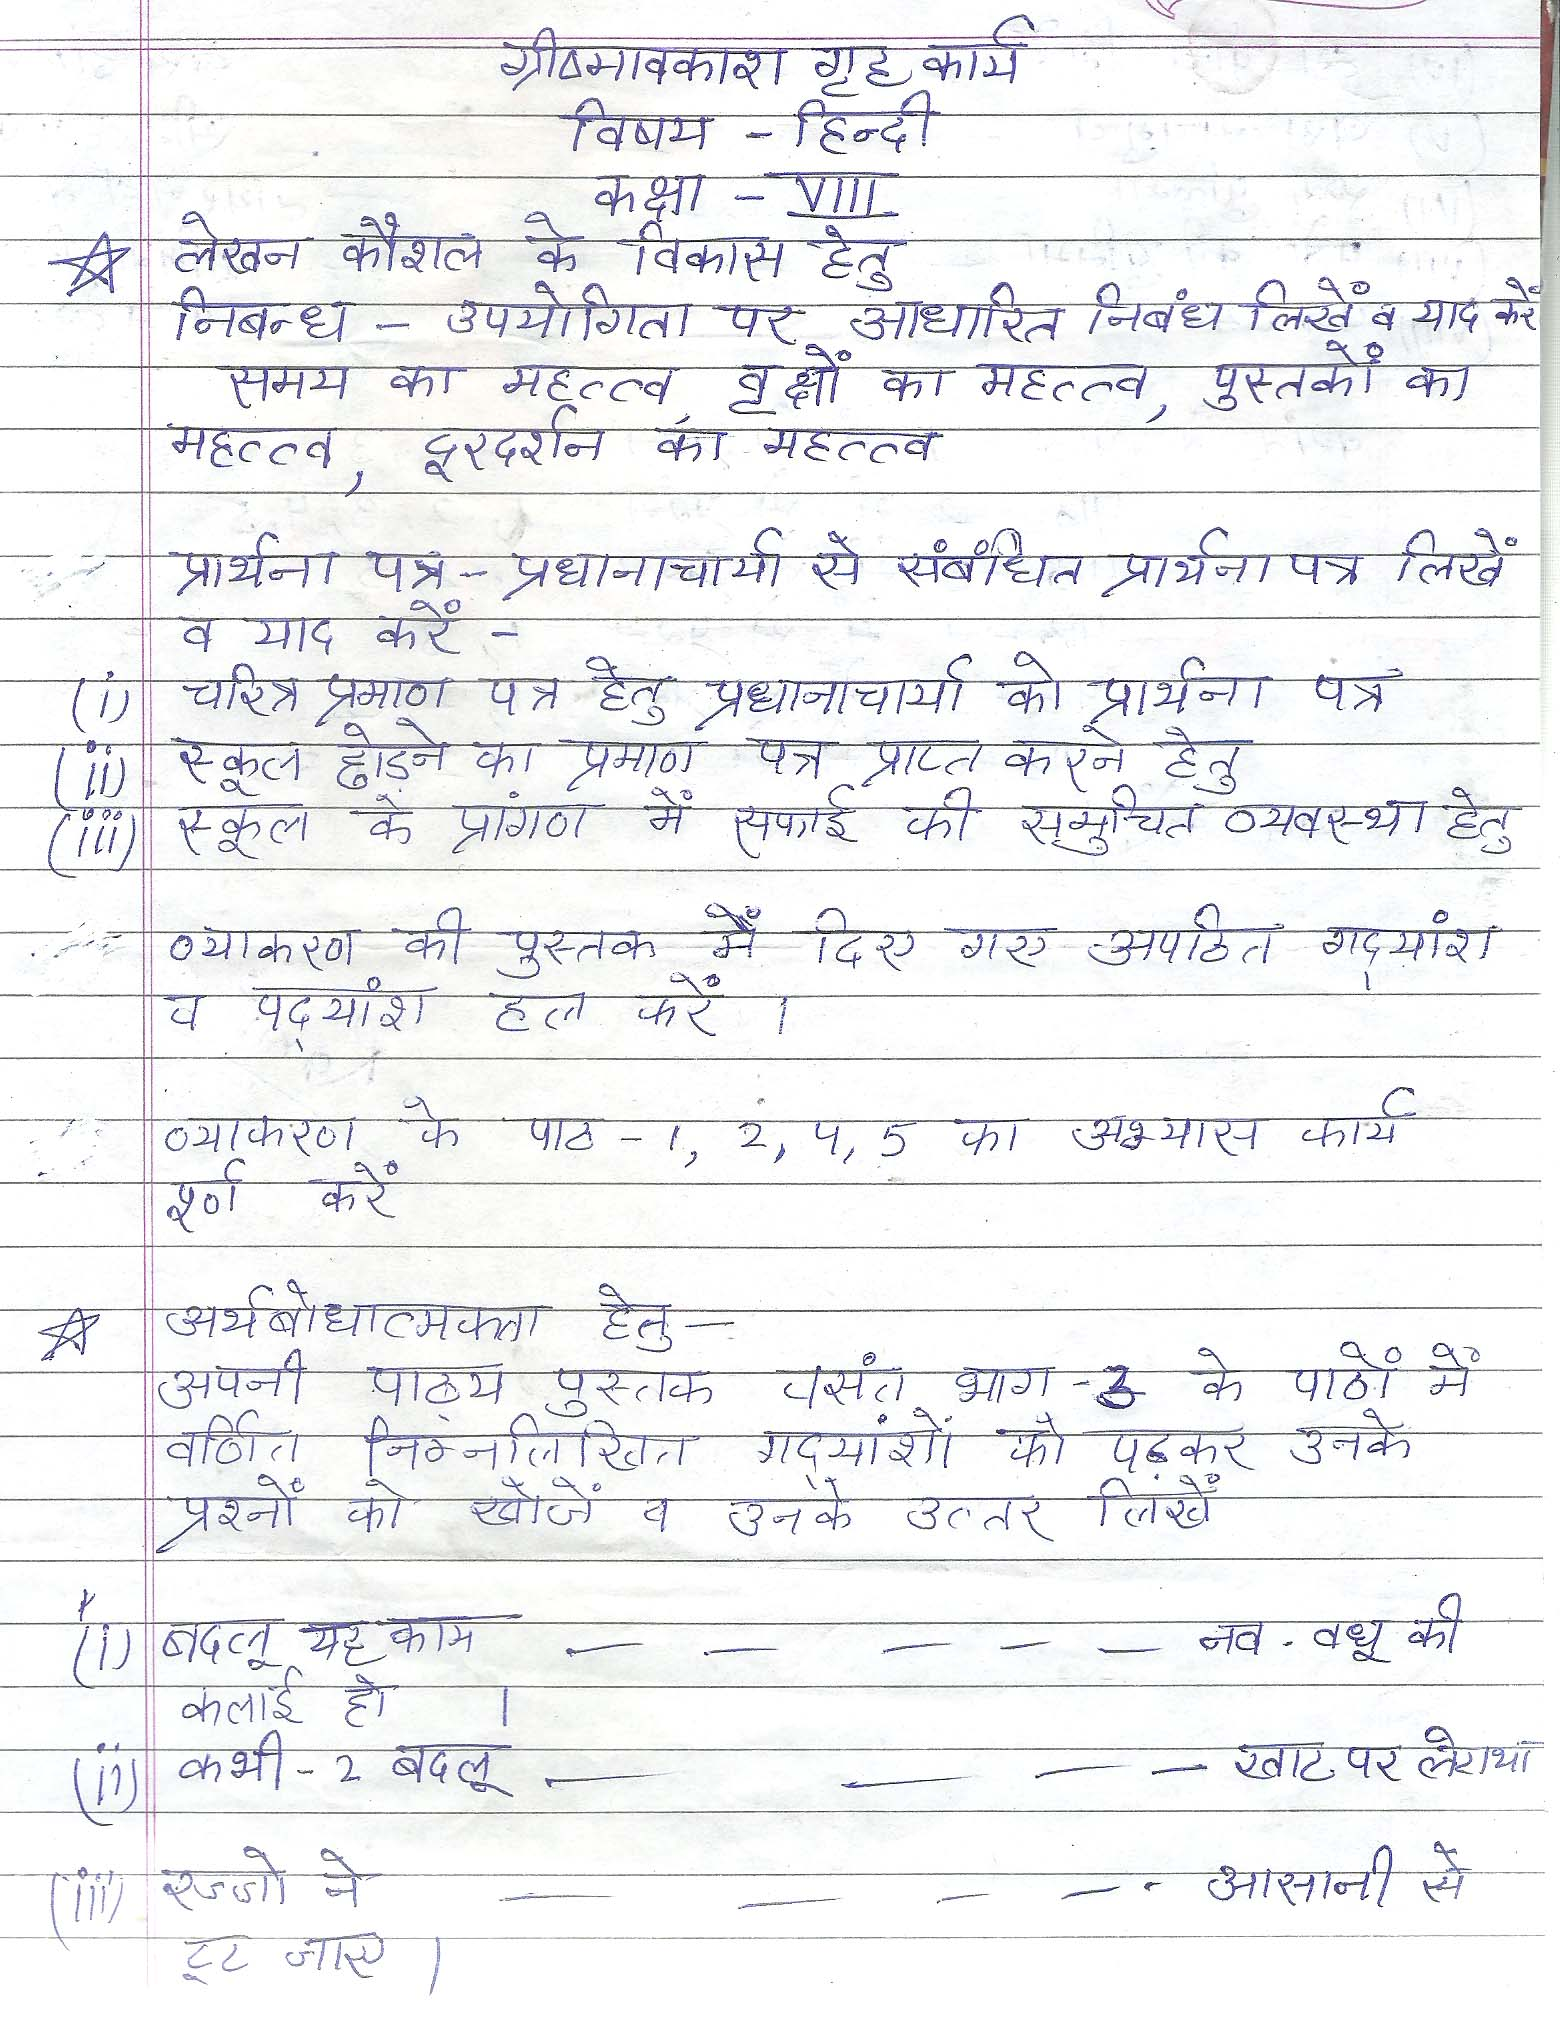 ग्रीष्मावकाश गृह कार्य
विषय - हिन्दी
कक्षा - VIII
☆ लेखन कौशल के विकास हेतु
निबन्ध - उपयोगिता पर आधारित निबंध लिखें व याद करें
समय का महत्त्व, वृक्षों का महत्त्व, पुस्तकों का
महत्त्व, दूरदर्शन का महत्त्व
प्रार्थना पत्र - प्रधानाचार्या से संबंधित प्रार्थना पत्र लिखें
व याद करें -
(i) चरित्र प्रमाण पत्र हेतु प्रधानाचार्या को प्रार्थना पत्र
(ii) स्कूल छोड़ने का प्रमाण पत्र प्राप्त करने हेतु
(iii) स्कूल के प्रांगण में सफाई की समुचित व्यवस्था हेतु
व्याकरण की पुस्तक में दिए गए अपठित गद्यांश
व पद्यांश हल करें ।
व्याकरण के पाठ - 1, 2, 4, 5 का अभ्यास कार्य
पूर्ण करें
☆ अर्थबोधात्मकता हेतु -
अपनी पाठ्य पुस्तक वसंत भाग - 3 के पाठों में
वर्णित निम्नलिखित गद्यांशों को पढ़कर उनके
प्रश्नों को खोजें व उनके उत्तर लिखें
(i) बदलू यह काम — — — — — नव - वधू की
कलाई हो ।
(ii) कभी - 2 बदलू — — — — खाट पर लेटा था
(iii) रज्जो ने — — — — - आसानी से
टूट जाए ।